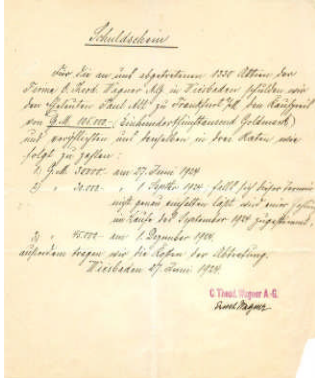 Schuldschein
Für die an uns abgetretenen 1330 Aktien der
Firma C. Theod. Wagner A.G. in Wiesbaden schulden wir
den Eheleuten Paul Alt zu Frankfurt a/M. den Kaufpreis
von G.M. 105.000.- (Einhundertfünftausend Goldmark)
und verpflichten uns denselben in drei Raten wie
folgt zu zahlen:
1) G.M. 30000.- am 27. Juni 1924
2) " 30.000.- " 1. Septbr 1924 fällt sich dieser Termin
nicht genau einhalten läßt wird mir
im Laufe des September 1924 zugestimmt.
3) " 45000.- am 1. Dezember 1924.
außerdem tragen wir die Kosten der Abtretung.
Wiesbaden 27. Juni 1924.
C. Theod. Wagner A.-G.
Wagner